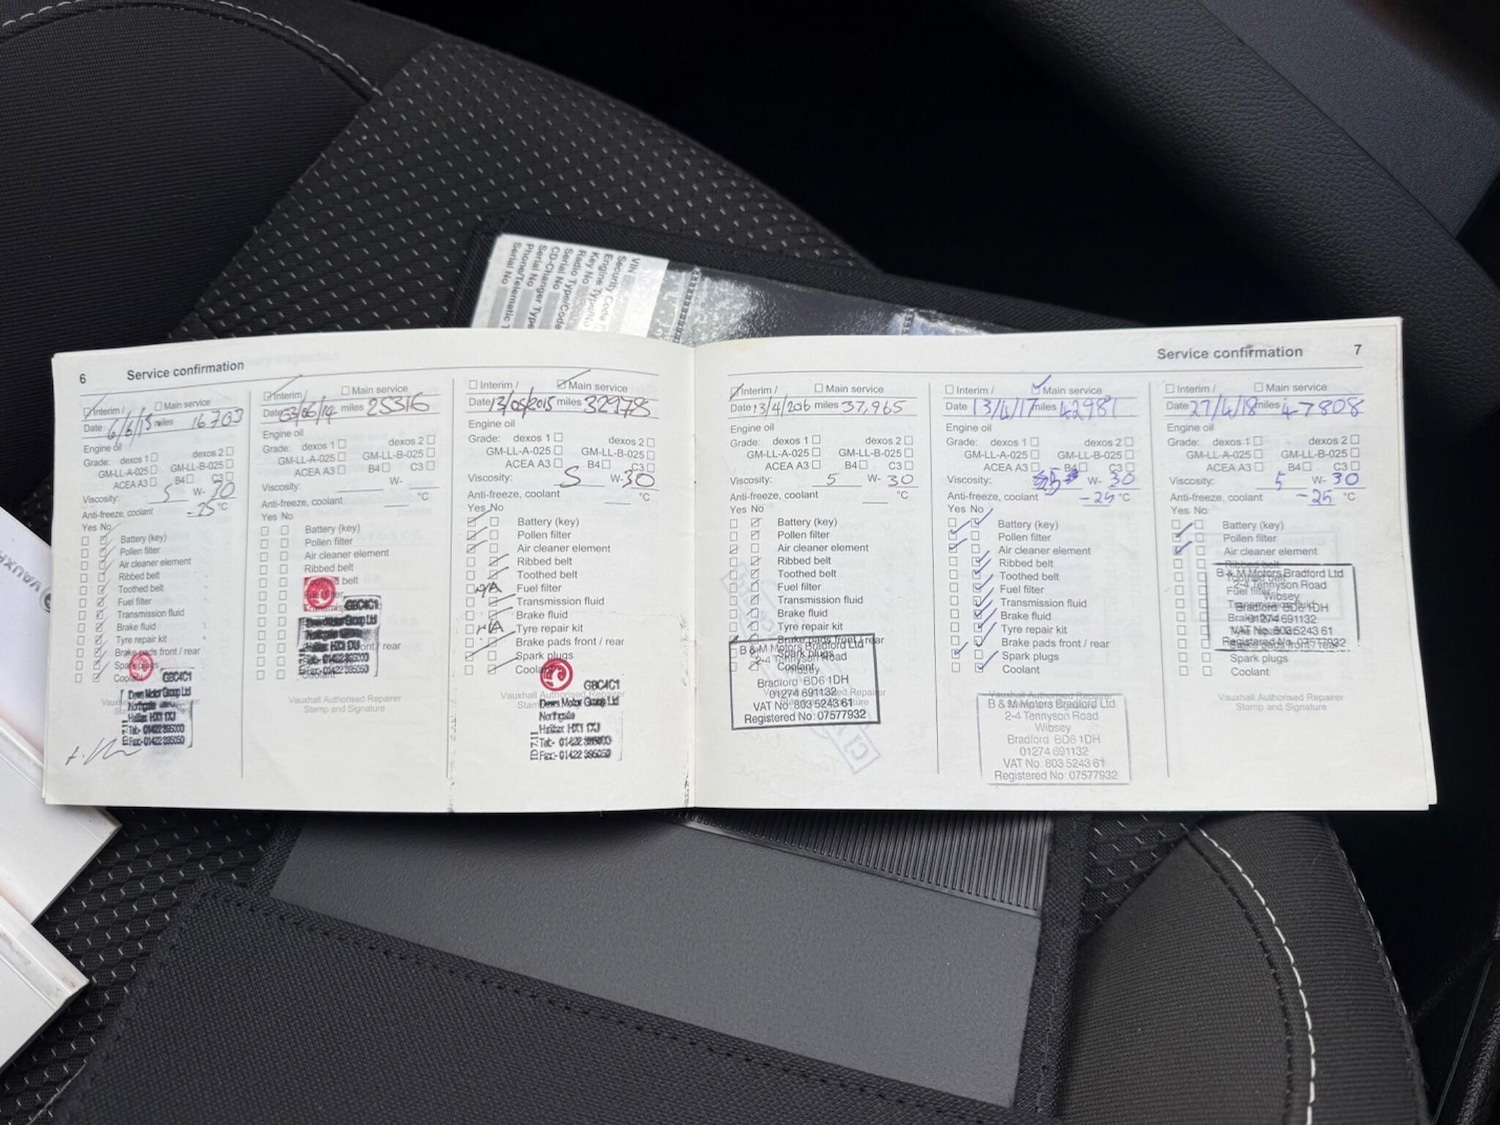 VIN
Security Code
Engine Type/
Key No
Radio Type/Code
Serial No
CD-Changer Type
Serial No
Phone/Telematic
Serial No
VAUXHA
6 Service confirmation
Interim / Main service
Date 6/6/13 miles 16703
Engine oil
Grade: dexos 1 dexos 2
GM-LL-A-025 GM-LL-B-025
ACEA A3 B4 C3
Viscosity: 5 W- 30
Anti-freeze, coolant -25 °C
Yes No
Battery (key)
Pollen filter
Air cleaner element
Ribbed belt
Toothed belt
Fuel filter
Transmission fluid
Brake fluid
Tyre repair kit
Brake pads front / rear
Spark plugs
Coolant
GBC4C1
Dews Motor Group Ltd
Northgate
Halifax HX1 1XJ
Tel:- 01422 385000
Fax:- 01422 385050
Stamp and Signature
Interim / Main service
Date 03/06/14 miles 25316
Engine oil
Grade: dexos 1 dexos 2
GM-LL-A-025 GM-LL-B-025
ACEA A3 B4 C3
Viscosity: W-
Anti-freeze, coolant °C
Yes No
Battery (key)
Pollen filter
Air cleaner element
Ribbed belt
belt
GBC4C1
Dews Motor Group Ltd
Northgate
Halifax HX1 1XJ
Tel:- 01422 385000
Fax:- 01422 385050
Vauxhall Authorised Repairer
Stamp and Signature
Interim / Main service
Date 13/05/2015 miles 32978
Engine oil
Grade: dexos 1 dexos 2
GM-LL-A-025 GM-LL-B-025
ACEA A3 B4 C3
Viscosity: 5 W-30
Anti-freeze, coolant °C
Yes No
Battery (key)
Pollen filter
Air cleaner element
Ribbed belt
Toothed belt
N/A Fuel filter
Transmission fluid
Brake fluid
N/A Tyre repair kit
Brake pads front / rear
Spark plugs
Coolant
GBC4C1
Vauxhall Authorised Repairer
Dews Motor Group Ltd
Northgate
Halifax HX1 1XJ
Tel:- 01422 385000
Fax:- 01422 385050
Service confirmation 7
Interim / Main service
Date 13/4/2016 miles 37,965
Engine oil
Grade: dexos 1 dexos 2
GM-LL-A-025 GM-LL-B-025
ACEA A3 B4 C3
Viscosity: 5 W- 30
Anti-freeze, coolant °C
Yes No
Battery (key)
Pollen filter
Air cleaner element
Ribbed belt
Toothed belt
Fuel filter
Transmission fluid
Brake fluid
Tyre repair kit
Brake pads front / rear
Spark plugs
Coolant
B & M Motors Bradford Ltd
2-4 Tennyson Road
Wibsey
Bradford BD6 1DH
01274 691132
VAT No: 803 5243 61
Registered No: 07577932
Interim / Main service
Date 13/4/17 miles 42981
Engine oil
Grade: dexos 1 dexos 2
GM-LL-A-025 GM-LL-B-025
ACEA A3 B4 C3
Viscosity: 5 W- 30
Anti-freeze, coolant -25 °C
Yes No
Battery (key)
Pollen filter
Air cleaner element
Ribbed belt
Toothed belt
Fuel filter
Transmission fluid
Brake fluid
Tyre repair kit
Brake pads front / rear
Spark plugs
Coolant
Vauxhall Authorised Repairer
B & M Motors Bradford Ltd
2-4 Tennyson Road
Wibsey
Bradford BD6 1DH
01274 691132
VAT No: 803 5243 61
Registered No: 07577932
Interim / Main service
Date 27/4/18 miles 47808
Engine oil
Grade: dexos 1 dexos 2
GM-LL-A-025 GM-LL-B-025
ACEA A3 B4 C3
Viscosity: 5 W- 30
Anti-freeze, coolant -25 °C
Yes No
Battery (key)
Pollen filter
Air cleaner element
Ribbed belt
B & M Motors Bradford Ltd
2-4 Tennyson Road
Wibsey
Bradford BD6 1DH
01274 691132
VAT No: 803 5243 61
Registered No: 07577932
Spark plugs
Coolant
Vauxhall Authorised Repairer
Stamp and Signature